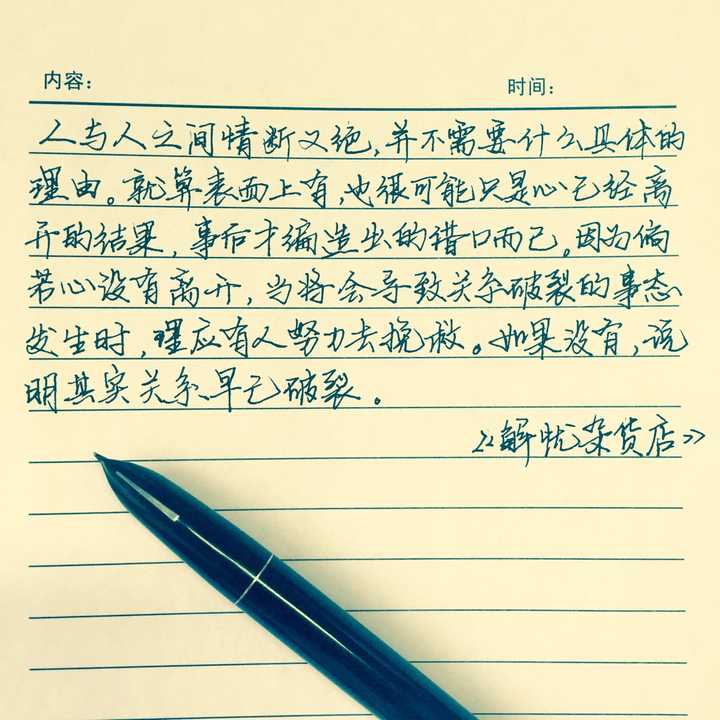 内容： 时间：
人与人之间情断义绝，并不需要什么具体的
理由。就算表面上有，也很可能只是心已经离
开的结果，事后才编造出的借口而已。因为倘
若心没有离开，当将会导致关系破裂的事态
发生时，理应有人努力去挽救。如果没有，说
明其实关系早已破裂。
《解忧杂货店》